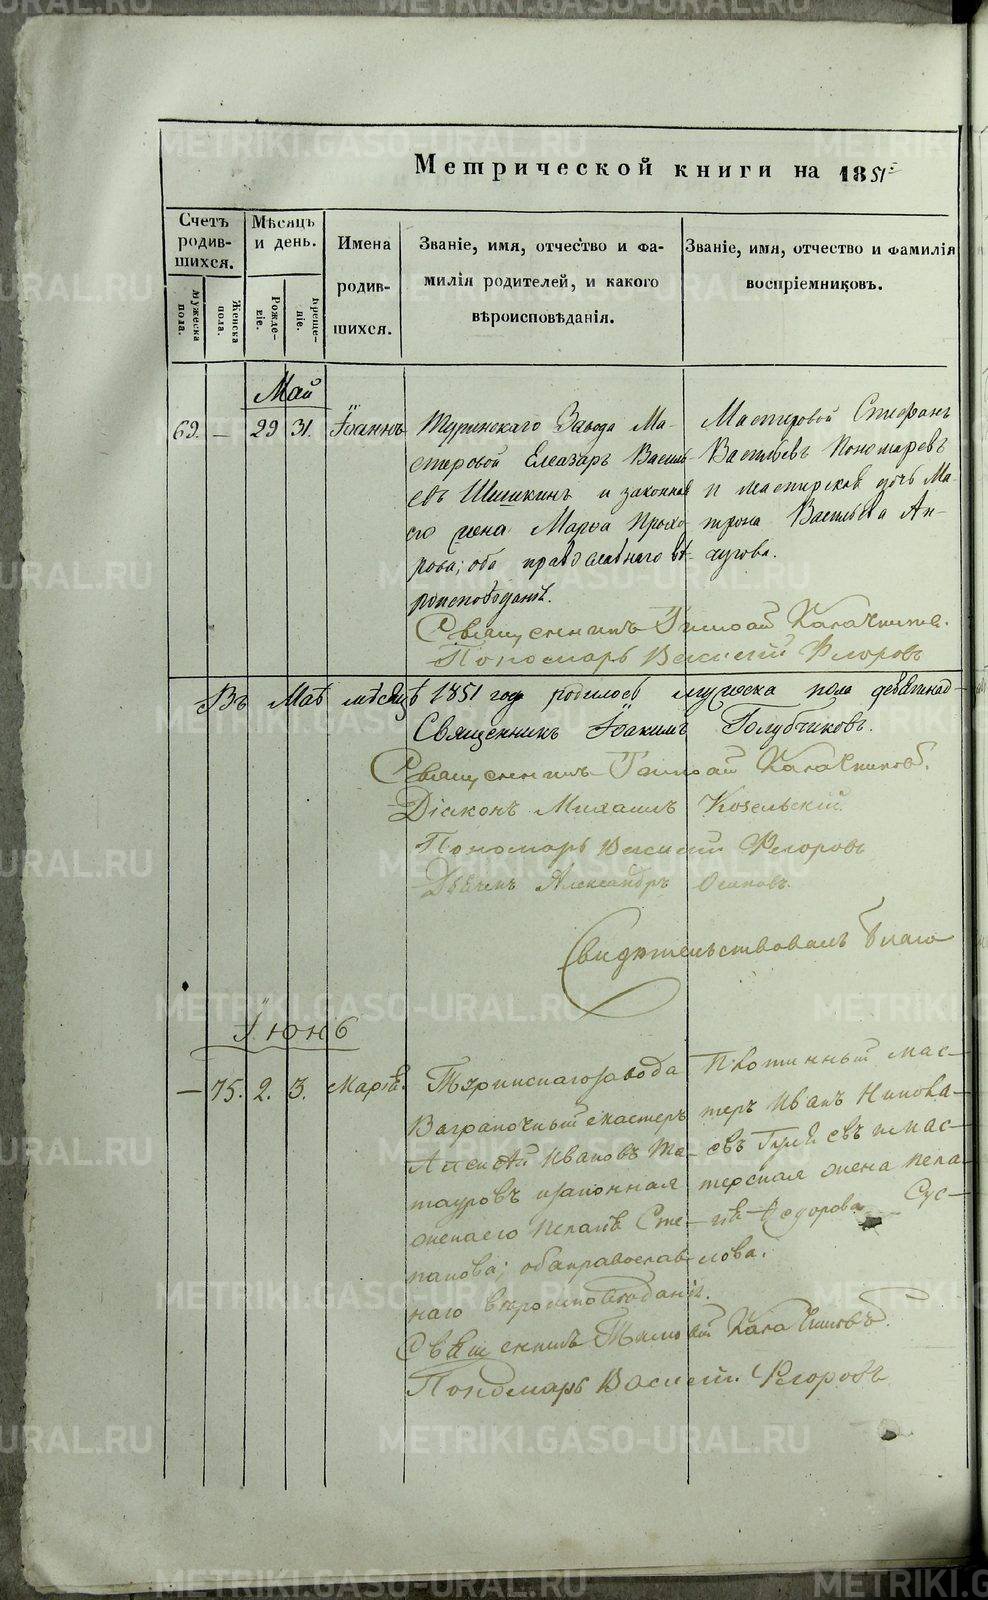 Метрической книги на 1851
Счетъ родив-шихся.
Мѣсяцъ и день.
Имена родив-шихся.
Званіе, имя, отчество и фа-
милія родителей, и какого
вѣроисповѣданія.
Званіе, имя, отчество и фамилія
воспріемниковъ.
Мужеска пола.
Женска пола.
Рожде-ніе.
Креще-ніе.
Май
69. — 29 31. Іоаннъ
Туринскаго Завода Ма-
стеровой Елеазаръ Василь
евъ Шишкинъ и законная
его жена Марѳа Прохо
рова; оба православнаго вѣ-
роисповѣданія.
Мастеровой Стефанъ
Васильевъ Пономаревъ
и мастерская дочь Ма-
трона Васильева Ан-
чугова.
Священникъ Тимоѳей Калачниковъ.
Пономарь Василій Флоровъ
Въ Маѣ мѣсяцѣ 1851 года родилось мужеска пола девятнад-
Священникъ Іоакимъ Голубчиковъ.
Священникъ Тимоѳей Калачниковъ.
Діаконъ Михаилъ Козельскій.
Пономарь Василій Флоровъ
Дьячекъ Александръ Осиповъ.
Свидѣтельствовалъ Благо
Іюнь
— 75. 2. 3. Марія.
Туринскаго завода
Ваграночный мастеръ
Алексѣй Ивановъ Та-
тауровъ и законная
жена его Пелагея Сте-
панова; оба православ
наго вѣроисповѣданія.
Плотинный мас-
теръ Иванъ Никола-
евъ Гулѣевъ и мас-
терская жена Пела-
гея Федорова Сус-
лова.
Священникъ Тимоѳей Калачниковъ.
Пономарь Василій Флоровъ
METRIKI.GASO-URAL.RU